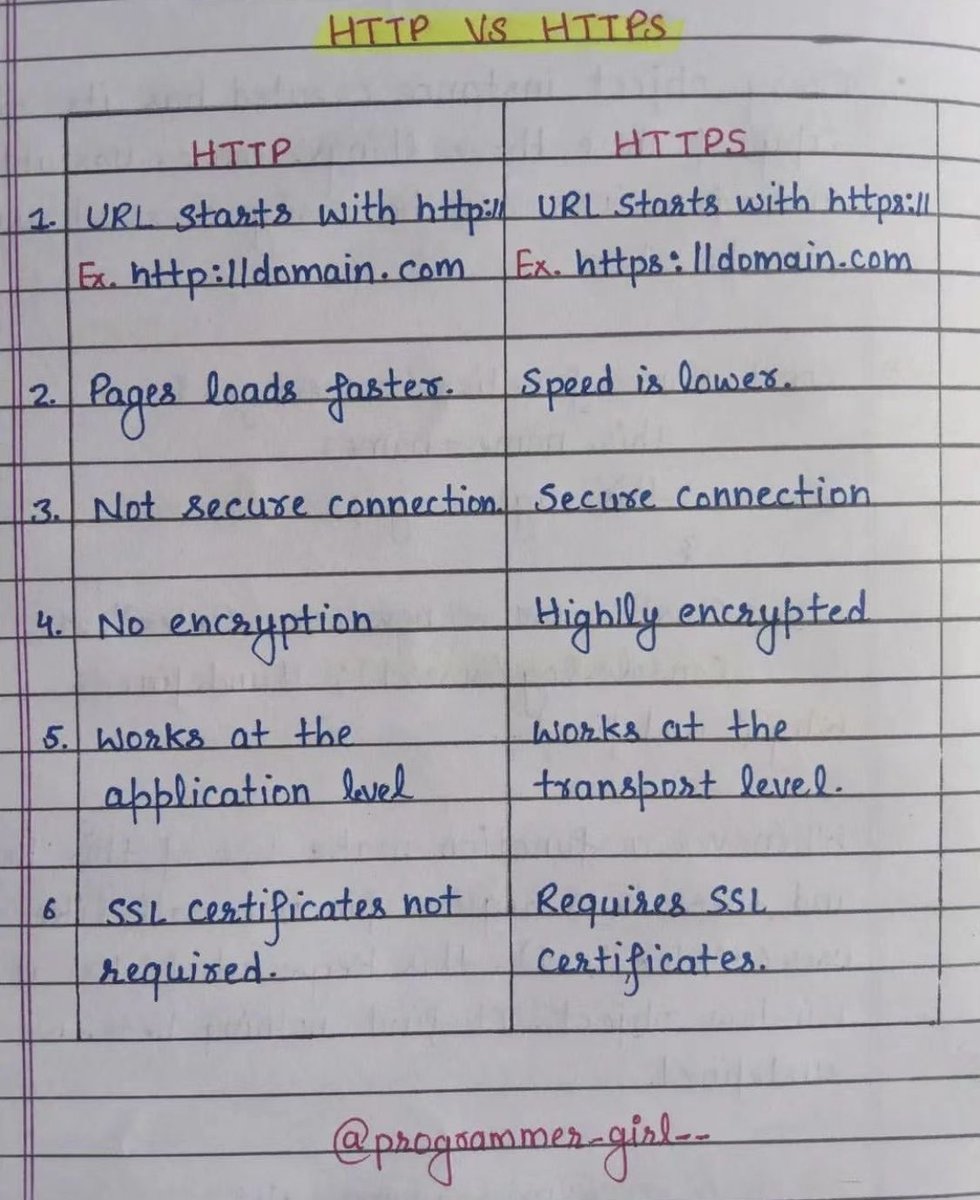 HTTP VS HTTPS
HTTP
HTTPS
1. URL starts with http://
Ex. http://domain.com
URL starts with https://
Ex. https://domain.com
2. Pages loads faster.
Speed is lower.
3. Not secure connection.
Secure connection
4. No encryption
Highlly encrypted
5. Works at the
application level
Works at the
transport level.
6 SSL certificates not
required.
Requires SSL
certificates.
@programmer_girl__